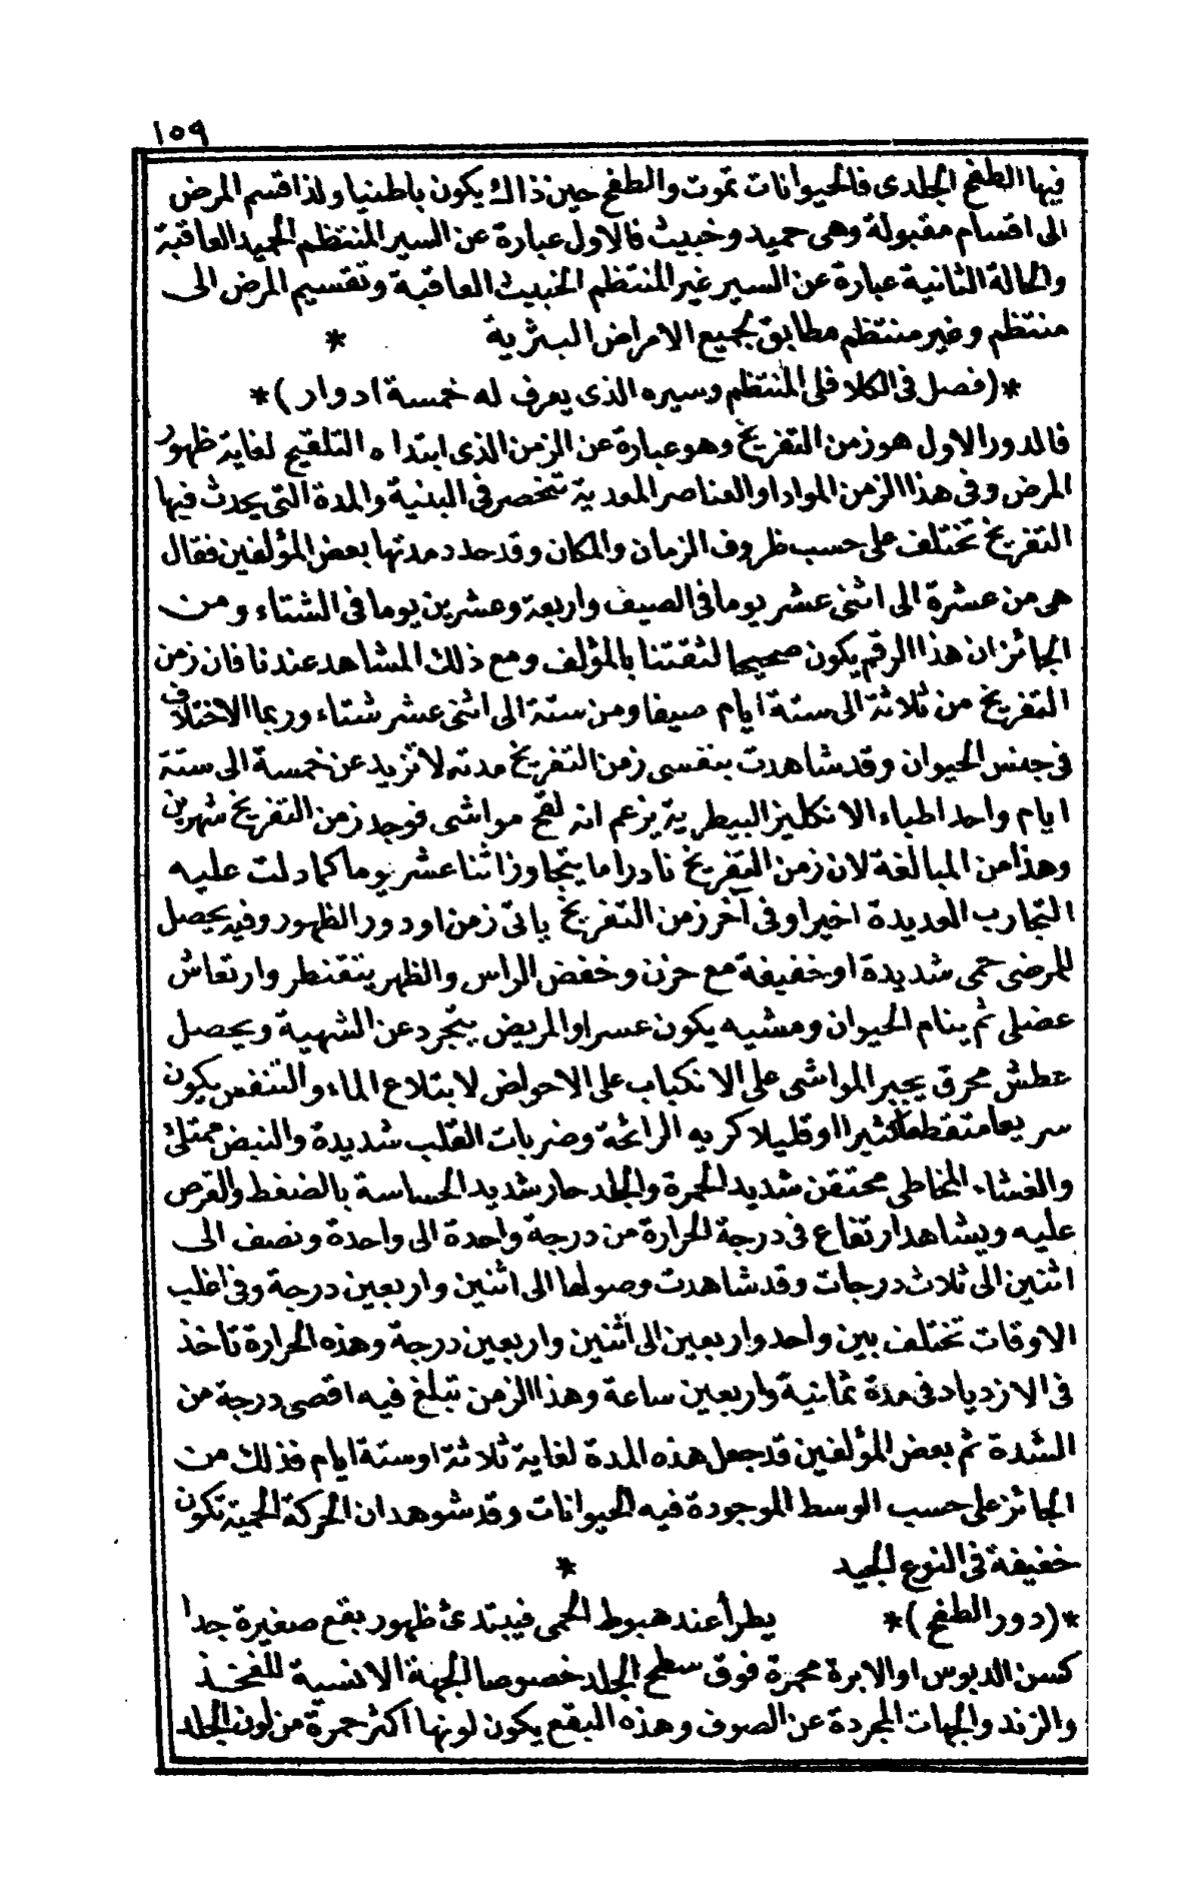 ١٥٩
فيها الطفح الجلدى فالحيوانات تموت والطفح حين ذاك يكون باطنيا ولذا قسم المرض
الى اقسام مقبولة وهى حميد وخبيث فالاول عبارة عن السير المنتظم الحميد العاقبة
والحالة الثانية عبارة عن السير غير المنتظم الخبيث العاقبة وتقسيم المرض الى
منتظم وغير منتظم مطابق لجميع الامراض البثرية *
*(فصل فى الكلا فلى المنتظم وسيره الذى يعرف له خمسة ادوار)*
فالدور الاول هو زمن التفريخ وهو عبارة عن الزمن الذى ابتداه التلقيح لغاية ظهور
المرض وفى هذا الزمن المواد او العناصر المعدية تنحصر فى البنية والمدة التى يحدث فيها
التفريخ تختلف على حسب ظروف الزمان والمكان وقد حدد مدتها بعض المؤلفين فقال
هى من عشرة الى اثنى عشر يوما فى الصيف واربعة وعشرين يوما فى الشتاء ومن
الجائز ان هذا الرقم يكون صحيحا لثقتنا بالمؤلف ومع ذلك المشاهد عندنا فان زمن
التفريخ من ثلاثة الى ستة ايام صيفا ومن ستة الى اثنى عشر شتاء وربما الاختلاف
فى جنس الحيوان وقد شاهدت بنفسى زمن التفريخ مدته لا تزيد عن خمسة الى ستة
ايام واحد اطباء الانكليز البيطرية يزعم انه لقح مواشى فوجد زمن التفريخ شهرين
وهذا من المبالغة لان زمن التفريخ نادرا ما يتجاوز اثنا عشر يوما كما دلت عليه
التجارب العديدة اخيرا وفى آخر زمن التفريخ ياتى زمن او دور الظهور وفيه يحصل
للمرضى حمى شديدة او خفيفة مع حزن وخفض الراس والظهر يتقنطر وارتعاش
عضلى ثم ينام الحيوان ومشيه يكون عسرا والمريض يتجرد عن الشهية ويحصل
عطش محرق يجبر المواشى على الانكباب على الاحواض لابتلاع الماء والتنفس يكون
سريعا متقطعا كثيرا او قليلا كريه الرائحة وضربات القلب شديدة والنبض ممتلئ
والغشاء المخاطى محتقن شديد الحمرة والجلد حار شديد الحساسة بالضغط والقرص
عليه ويشاهد ارتفاع فى درجة الحرارة من درجة واحدة الى واحدة ونصف الى
اثنين الى ثلاث درجات وقد شاهدت وصولها الى اثنين واربعين درجة وفى اغلب
الاوقات تختلف بين واحد واربعين الى اثنين واربعين درجة وهذه الحرارة تاخذ
فى الازدياد فى مدة ثمانية واربعين ساعة وهذا الزمن تبلغ فيه اقصى درجة من
الشدة ثم بعض المؤلفين قد جعل هذه المدة لغاية ثلاثة او ستة ايام فذلك من
الجائز على حسب الوسط الموجودة فيه الحيوانات وقد شوهد ان الحركة الحمية تكون
خفيفة فى النوع الجيد *
*(دور الطفح)* يطرأ عند هبوط الحمى فيبتدئ ظهور بقع صغيرة جدا
كسن الدبوس او الابرة محمرة فوق سطح الجلد خصوصا الجهة الانسية للفخذ
والزند والجهات المجردة عن الصوف وهذه البقع يكون لونها اكثر حمرة من لون الجلد